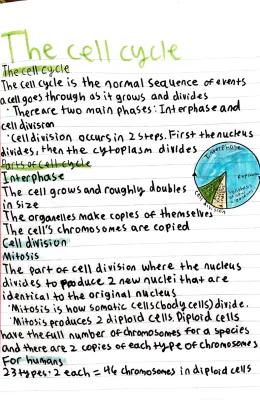 The cell cycle
The cell cycle
The cell cycle is the normal sequence of events
a cell goes through as it grows and divides
· There are two main phases: Interphase and
cell division
· Cell division occurs in 2 steps. First the nucleus
divides, then the cytoplasm divides
Interphase
Parts of cell cycle
Interphase
The cell grows and roughly doubles
in size
The organelles make copies of themselves
The cell's chromosomes are copied
Cell division
Mitosis
The part of cell division where the nucleus
divides to produce 2 new nuclei that are
identical to the original nucleus
· Mitosis is how somatic cells (body cells) divide.
· Mitosis produces 2 diploid cells. Diploid cells
have the full number of chromosomes for a species
and there are 2 copies of each type of chromosomes
For humans
23 types · 2 each = 46 chromosomes in diploid cells